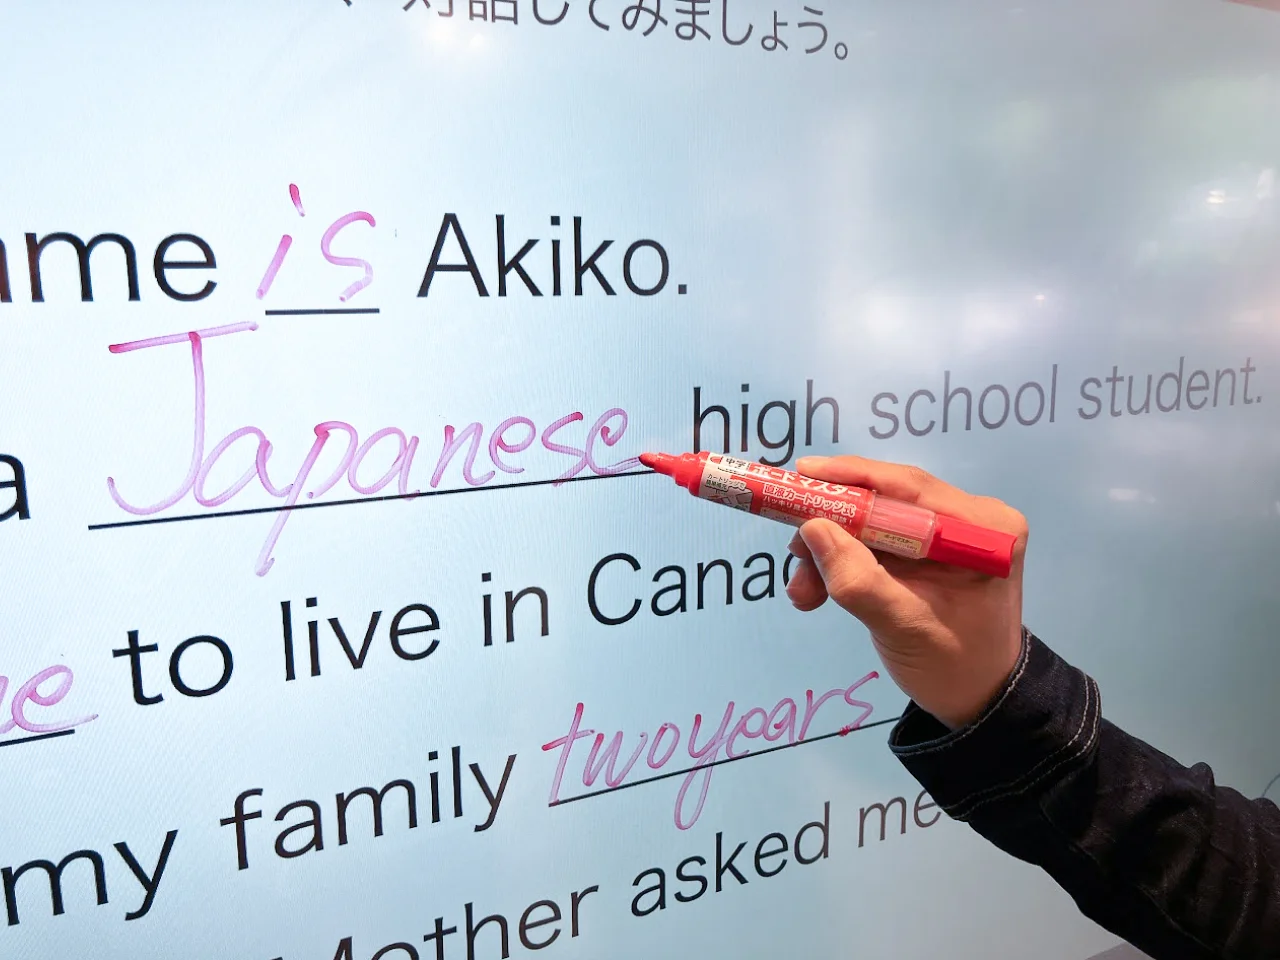 対話してみましょう。
ame is Akiko.
a Japanese high school student.
中字 ボードマスター
直液カートリッジ式
e to live in Canad
my family twoyears
Mother asked me